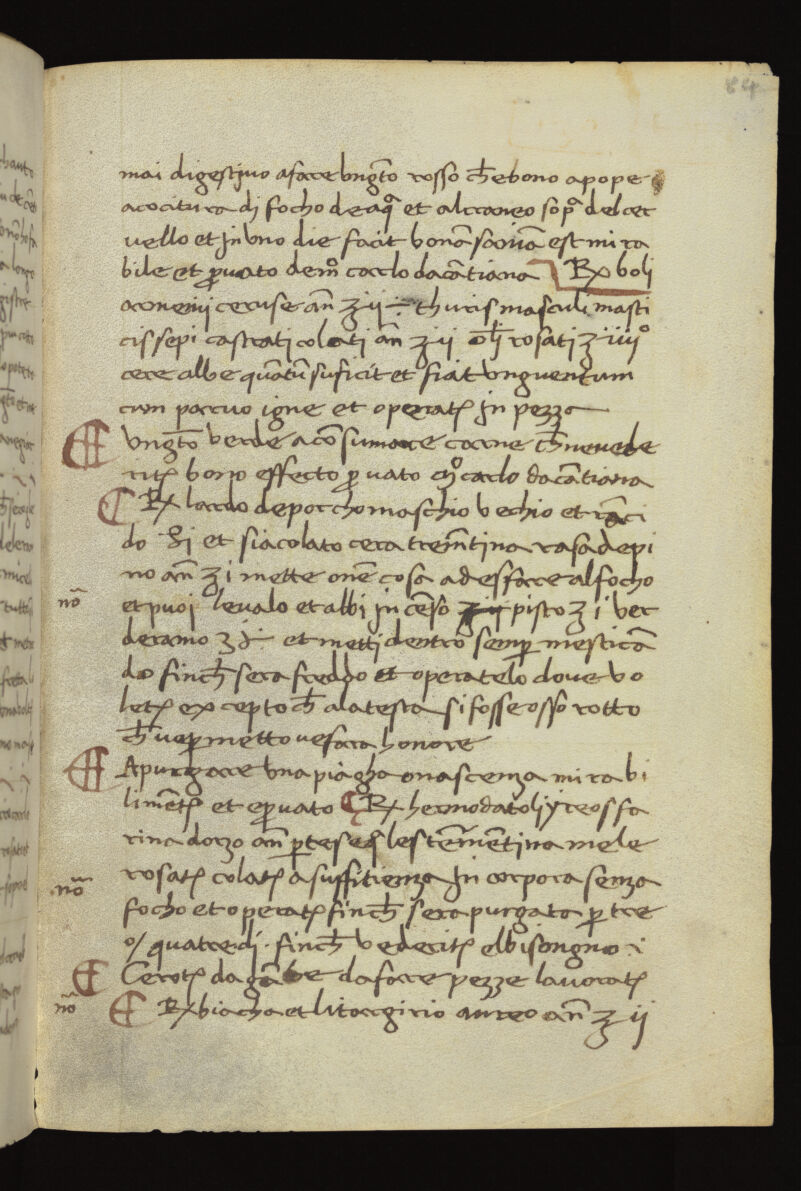 84
mai digestiuo a fare ungto rosso ch̄ e bono a pope
a cocitura di focho de aq̄ et al craneo sopa del cer
uello et in uno die facit bonā et mira
bile et puato de mo carlo da cātiana ℞ boli
armenij ceruse an̄ ʒ ii thuris masculi masti
cis sepi castrati colati an̄ ʒ ii olj rosati ʒ iiijo
cere albe quātū suficit et fiat unguentum
cum paruo igne et operate in pezza
Ungto uerde a cōsumare carne ch̄ ne uede
rite bono effecto puato mo carlo da cātiana
℞ lardo de porcho maschio uechio et rāci
do ℔ i et sia colato cera tremētina rasa de pi
no an̄ ʒ i mette onē cosa a desfare al focho
nō
et puoi leualo et abbi incēso pisto ʒ i uer
deramo ʒ et metti dentro semp mesticā
do finch̄ sera freddo et operatelo doue uo
lete excepto ch̄ a la testa si fosse osso rotto
ch̄ ue pmetto ue fara honore
A purgare una piagha o nascenza mirabi
limēte et epuato ℞ hermodatoli yreos fa
rina dorzo an̄ ptes eq̄les tremētina mele
nō
rosate colate a suffitienza in corpora senza
focho et operate finch̄ sera purgata p tre
o/ quatre di finch̄ uederite el bisongno
Cerote da gābe da fare pezze lauorate
nō
℞ biacha et litargirio aureo an̄ ʒ ii